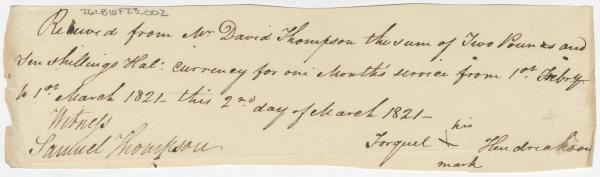 26-B10F23-002
Received from Mr David Thompson the sum of Two Pounds and
Ten shillings Hal: currency for one Month's service from 1st Febry.
to 1st March 1821 - this 2nd day of March 1821 -
Witness
Samuel Thompson
his
Torquel X Hendrickson
mark